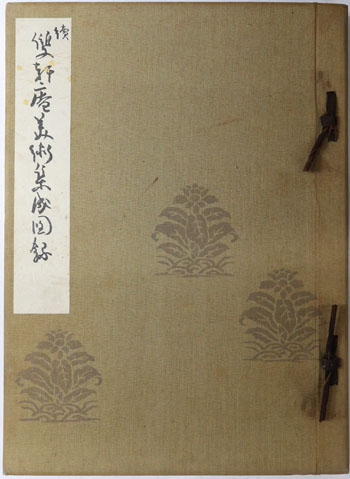 續
雙軒庵美術集成図録